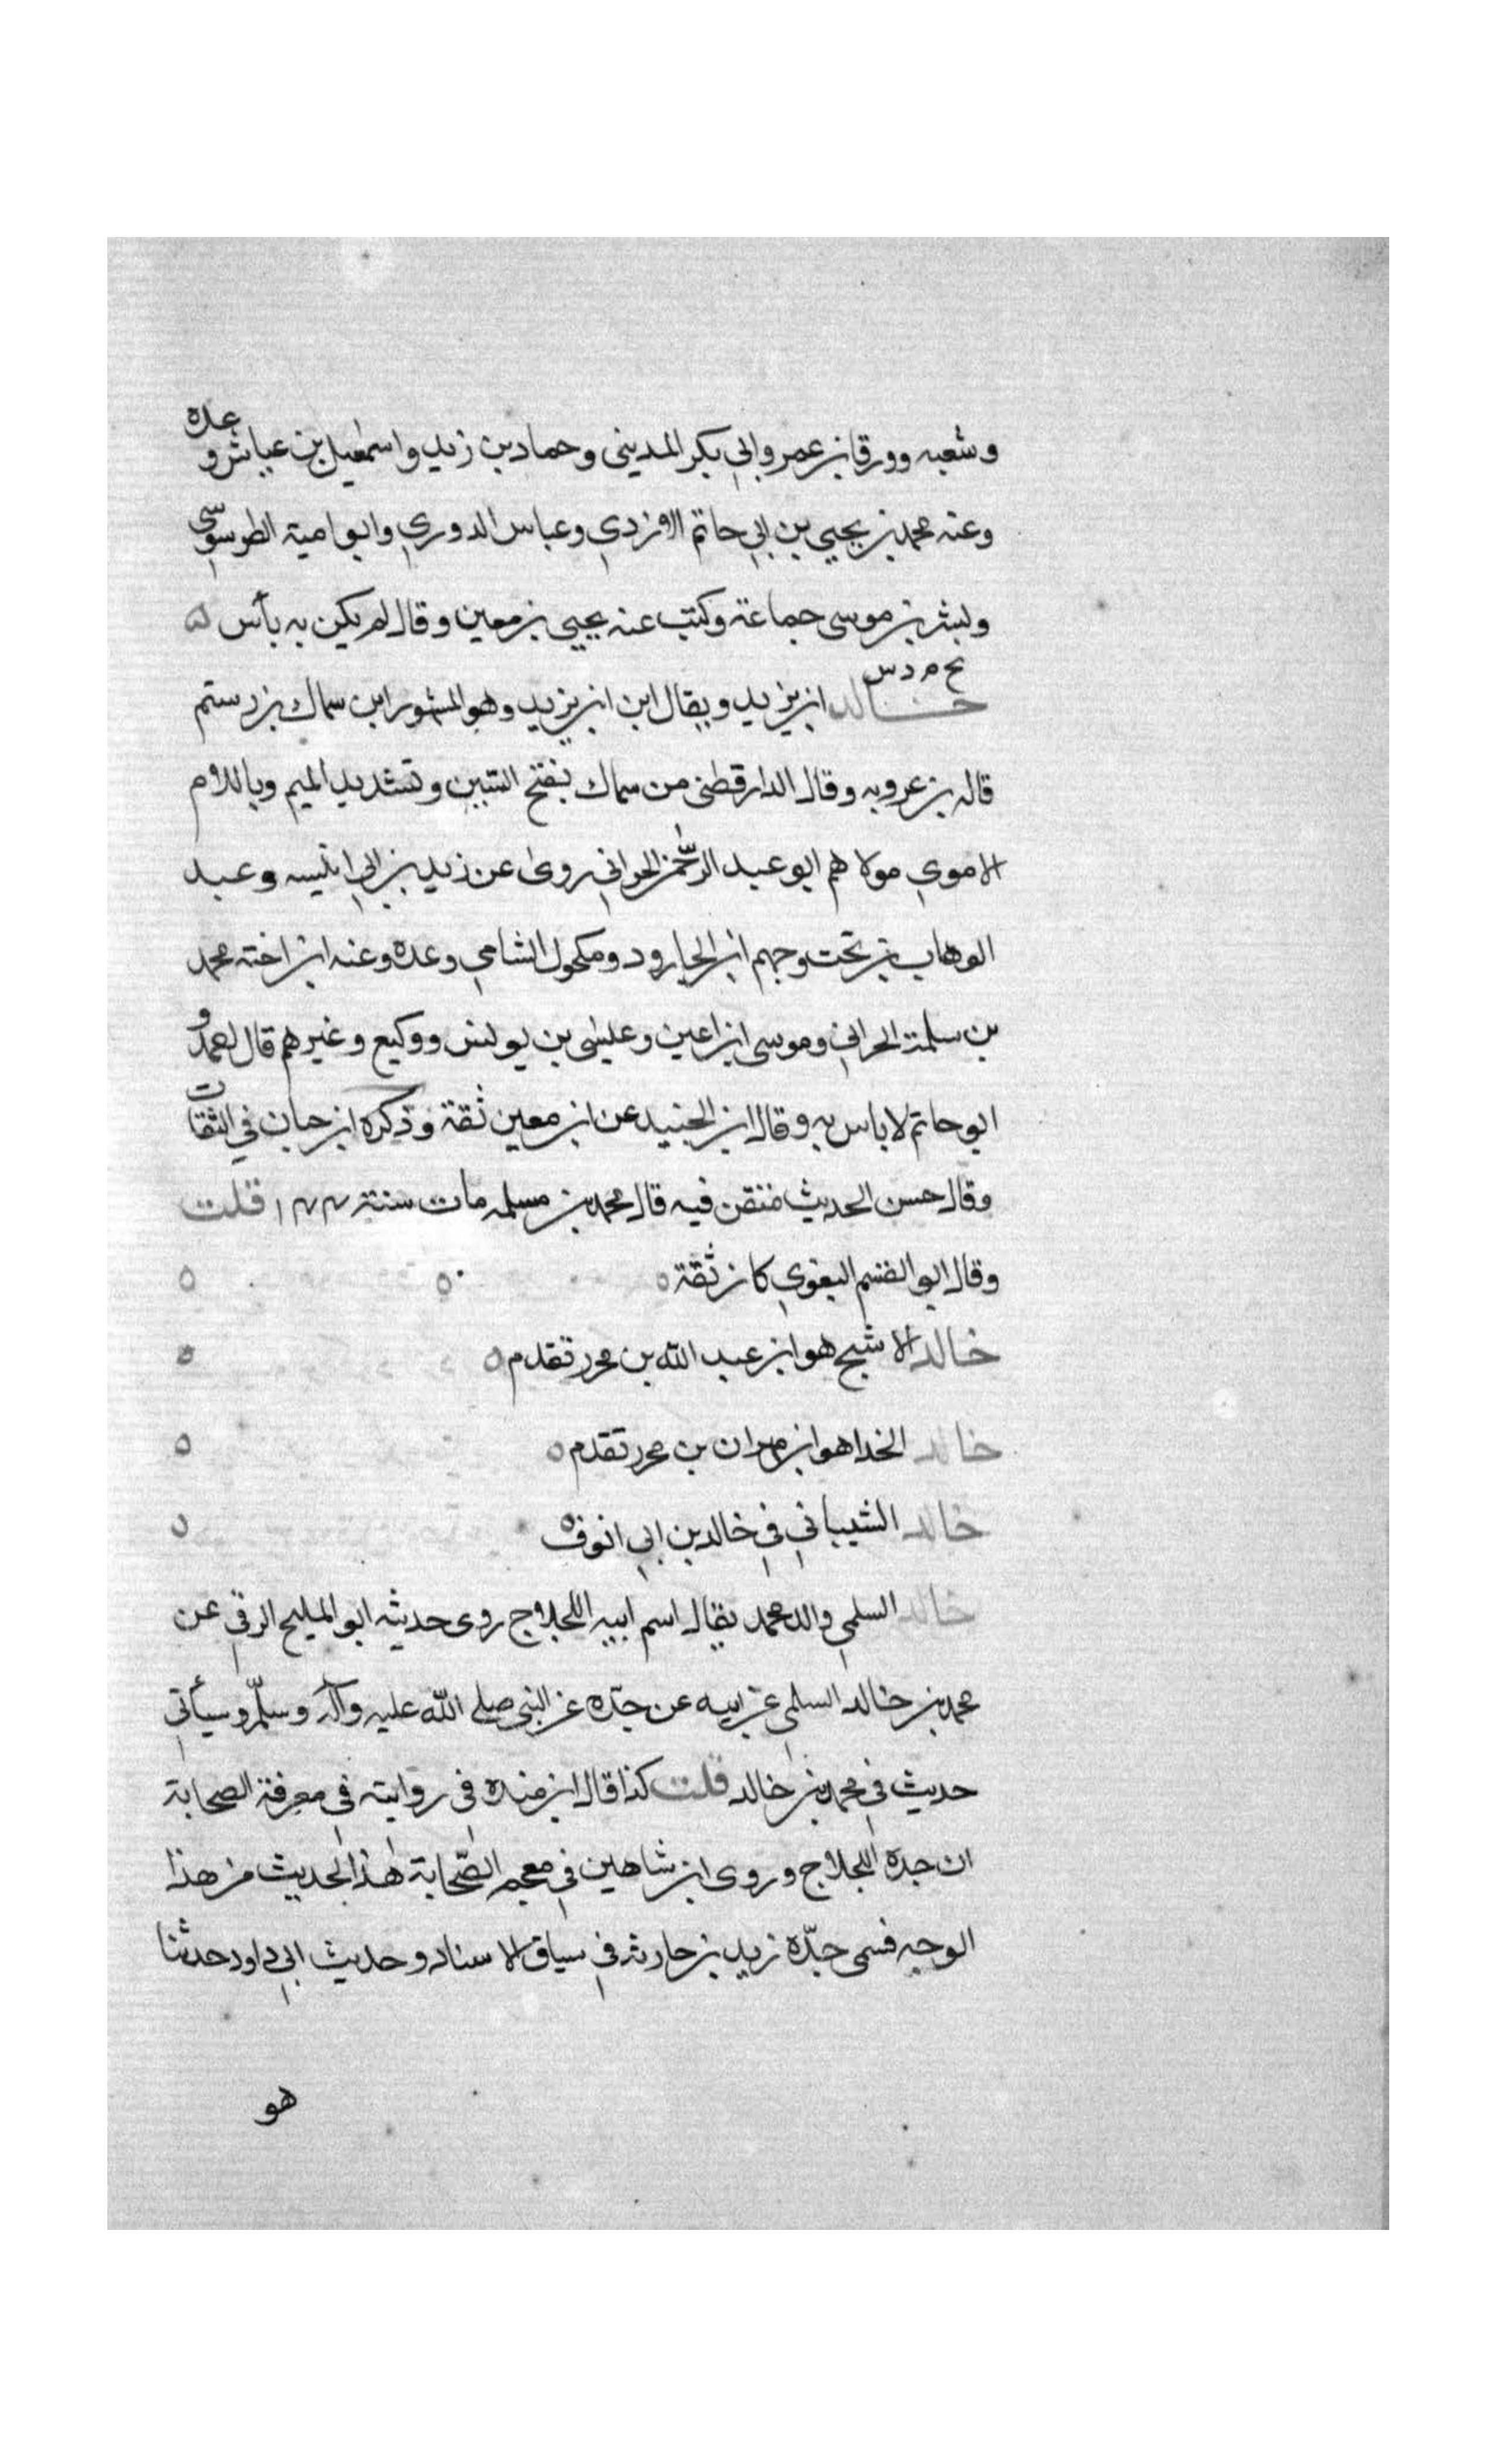 وشعبه وورقا بن عمر وابي بكر المديني وحماد بن زيد واسمعيل بن عياش وعده
وعنه محمد بن يحيي بن ابي حاتم الازدي وعباس الدوري وابو امية الطرسوسي
وبشر بن موسى جماعة وكتب عنه يحيي بن معين وقال لم يكن به بأس ٥
بخ م د س
خالد ابن يزيد ويقال ابن ابن يزيد وهو المشهور ابن سماك بن رستم
قاله بن عروبه وقال الدارقطنى من سماك بفتح السين وتشديد الميم وباللام
الاموي مولاهم ابو عبد الرحمن الحراني روى عن زيد بن ابي انيسه وعبد
الوهاب بن بخت وجهم ابن الجارود ومكحول الشامي وعده وعنه ابن اخته محمد
بن سلمة الحراني وموسى ابن اعين وعليسى بن يونس ووكيع وغيرهم قال احمد و
ابو حاتم لا باس به وقال ابن الجنيد عن ابن معين ثقة وذكره ابن حبان في الثقات
وقال حسن الحديث متقن فيه قال محمد بن مسلمه مات سنة ١٤٤ قلت
وقال ابو القسم البغوي كان ثقة ٥ ٥ ٥
خالد الاشج هو ابن عبد الله بن محرر تقدم ٥ ٥
خالد الحذا هو ابن مهران بن محرر تقدم ٥ ٥
خالد الشيباني في خالد بن ابي انوف ٥ ٥
خالد السلمي والد محمد يقال اسم ابيه اللجلاج روى حديثه ابو المليح الرقي عن
محمد بن خالد السلمي عن ابيه عن جده عن النبي صلى الله عليه وآله وسلم وسيأتي
حديث في محمد بن خالد قلت كذا قال ابن منده في روايته في معرفة الصحابة
ان جده اللجلاج وروى ابن شاهين في معجم الصحابة هذا الحديث من هذا
الوجه فسمى جده زيد بن حارثه في سياق الاسناد وحديث ابي داود حدثنا
هو